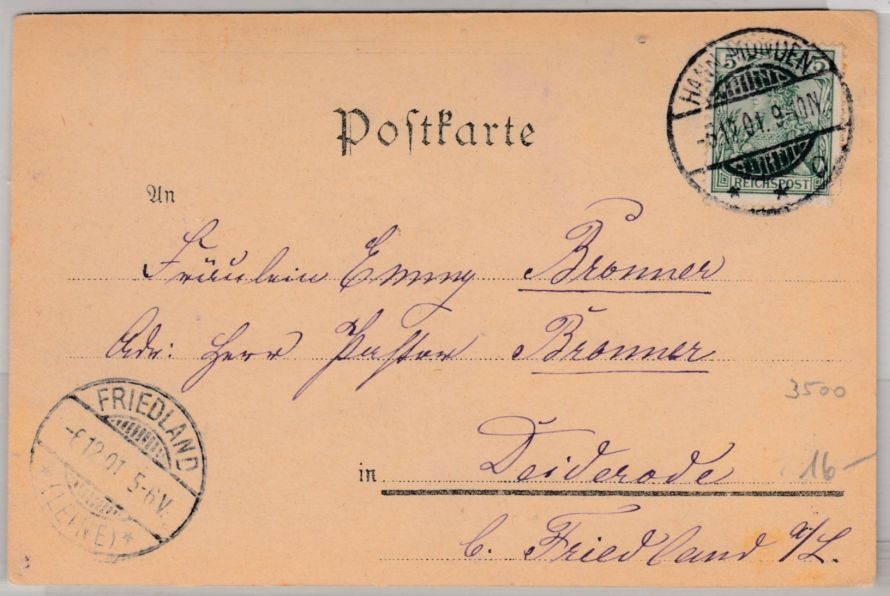 Postkarte
HANN. MÜNDEN
-5.12.01. 9-10N
C
5 5
REICHSPOST
An
Fräulein Emmy Bronner
Adr: Herr Pastor Bronner
3500
FRIEDLAND
-6.12.01 5-6V.
*(LEINE)*
in Deiderode
16-
b. Friedland a/L.